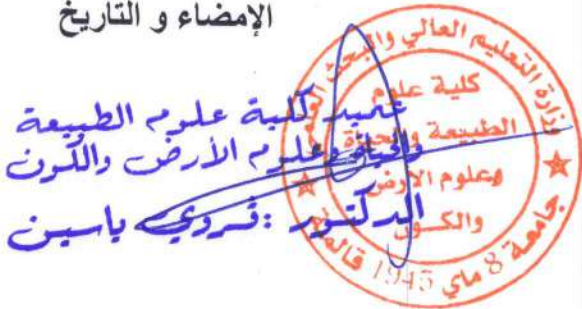 الإمضاء و التاريخ
عميد كلية علوم الطبيعة
والحياة وعلوم الأرض والكون
الدكتور : قروي ياسين
وزارة التعليم العالي والبحث العلمي
كلية علوم
الطبيعة والحياة
وعلوم الارض
والكون
جامعة 8 ماي 1945 قالمة